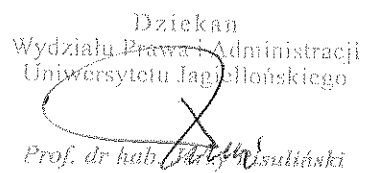 Dziekan
Wydziału Prawa i Administracji
Uniwersytetu Jagiellońskiego
Prof. dr hab. Jerzy Pisuliński